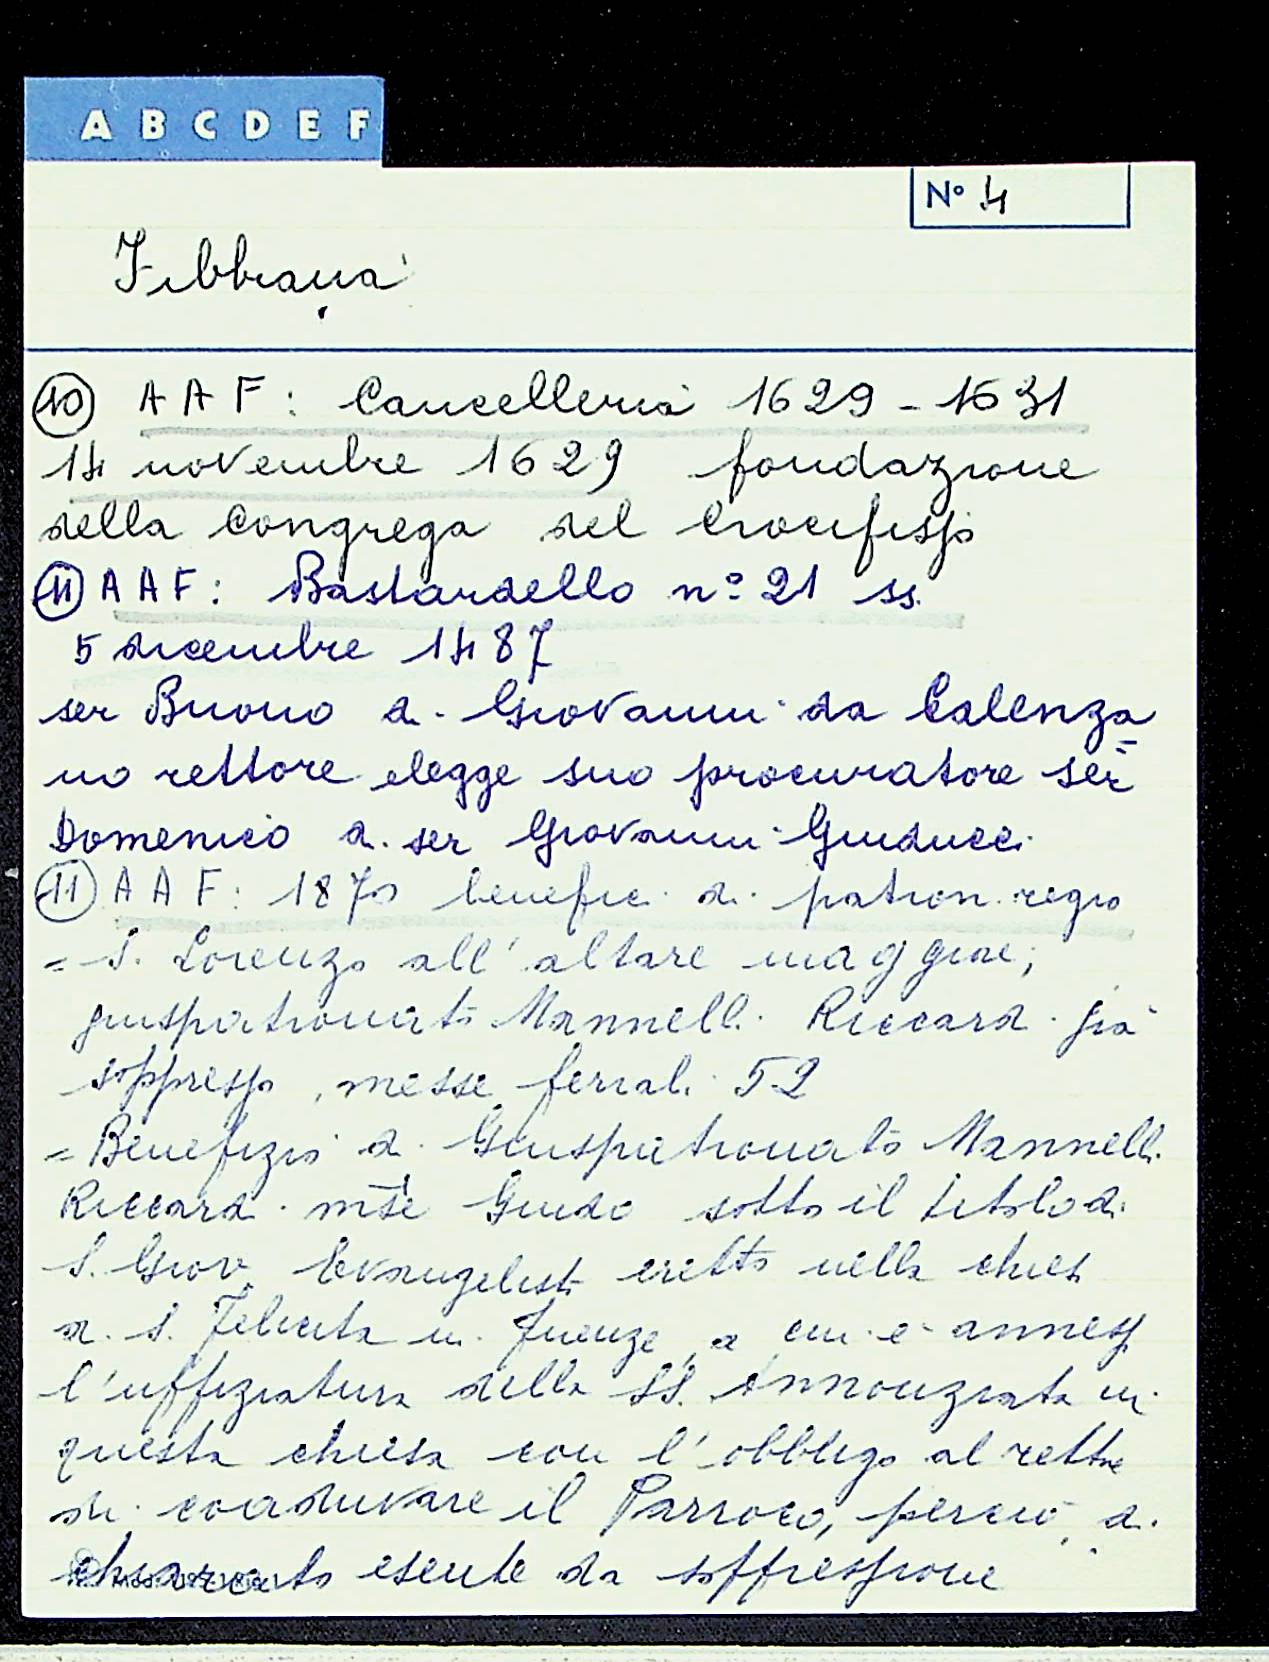 A B C D E F
N° 4
Fibbiana
10 AAF: Cancelleria 1629 - 1631
14 novembre 1629 fondazione
della Congrega del Crocifisso
11 AAF: Bastardello n° 21 ss.
5 dicembre 1487
ser Buono di Giovanni da Calenza
no rettore elegge suo procuratore ser
Domenico di ser Giovanni Guiducci
11 AAF: 1870 benefici di patron. regio
= S. Lorenzo all'altare maggiore;
giuspatronato Mannelli Riccardi già
soppresso, messe feriali 52
= Benefizio di Giuspatronato Mannelli
Riccardi Guido sotto il titolo di
S. Giov. Evangelista eretto nella chiesa
di S. Felicita in Firenze, a cui è annessa
l'uffiziatura della SS. Annonziata in
questa chiesa con l'obbligo al rettore
di coadiuvare il Parroco, perciò di
chiarato esente da soppressione